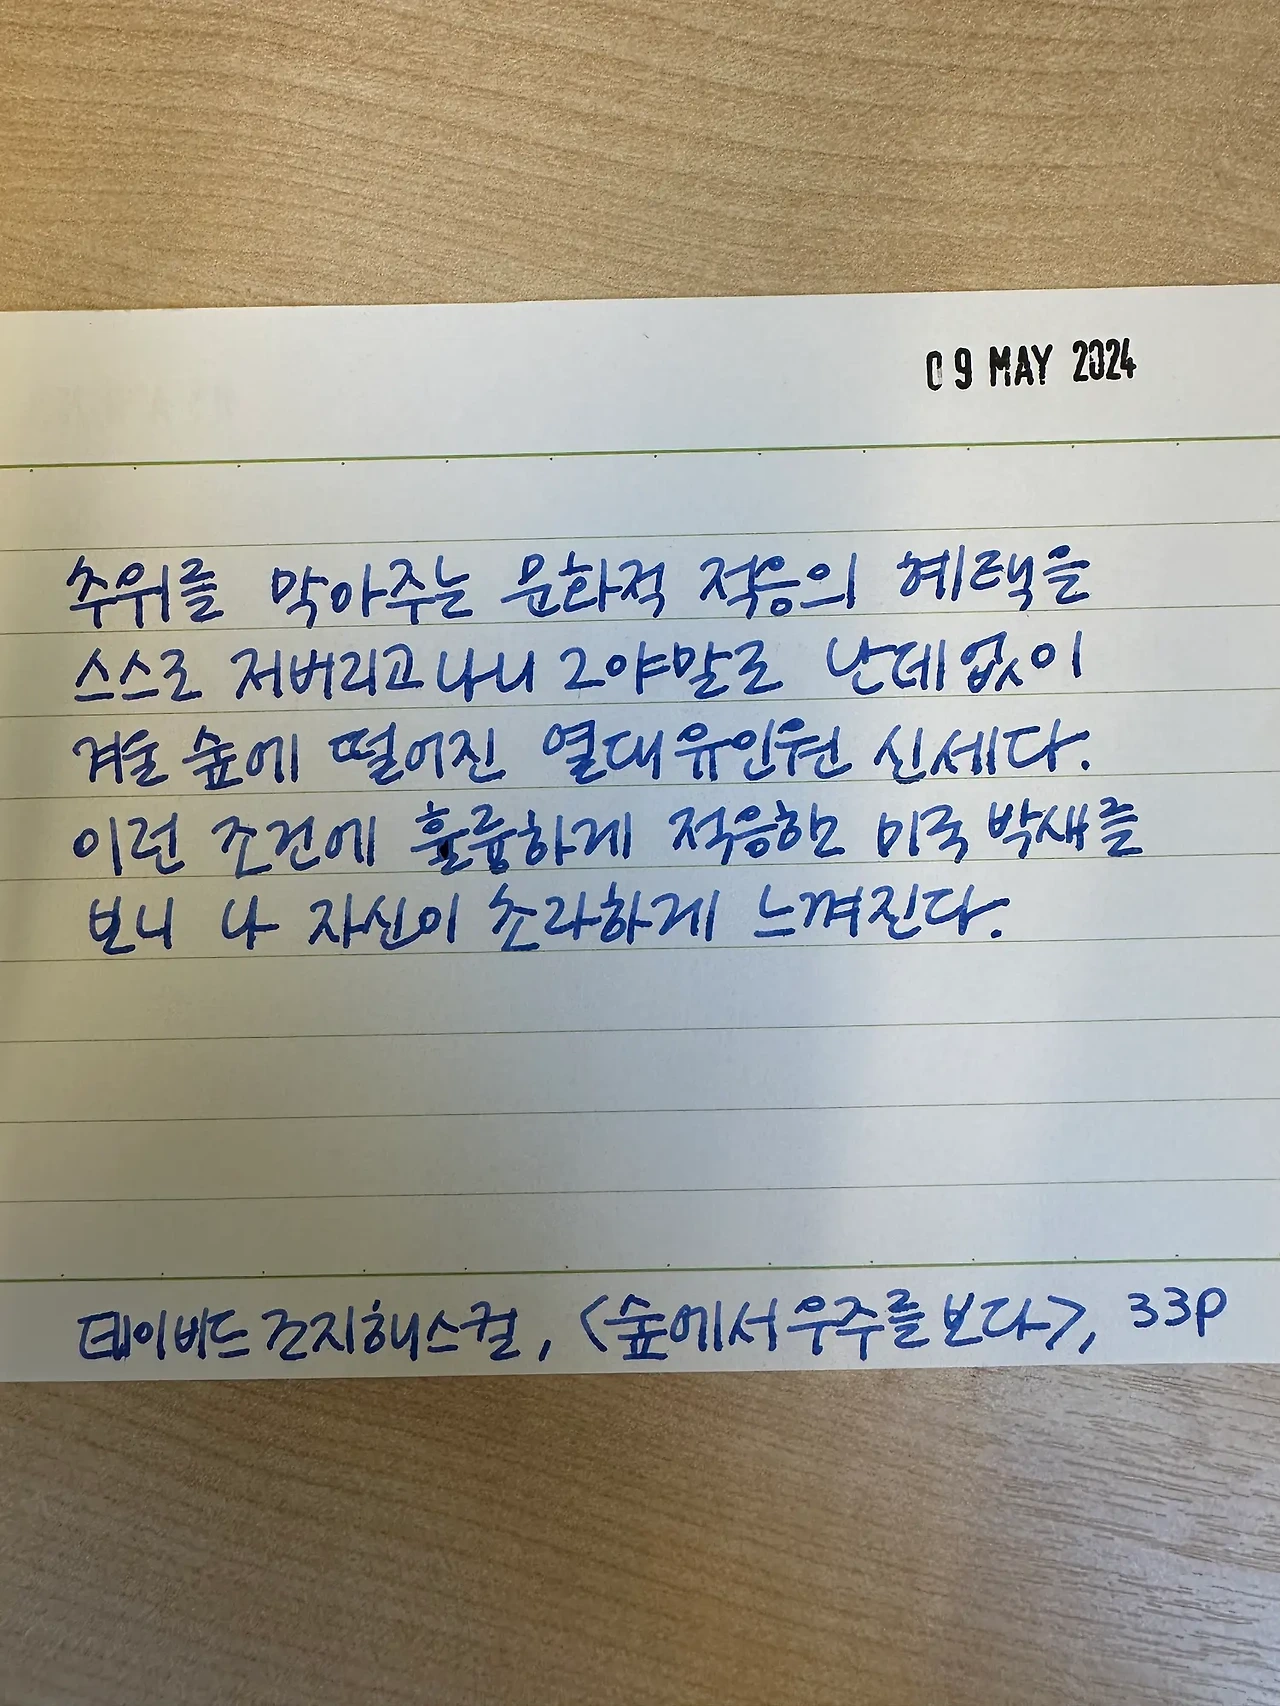 09 MAY 2024
추위를 막아주는 문화적 적응의 혜택을
스스로 저버리고나니 그야말로 난데없이
겨울 숲에 떨어진 열대유인원 신세다.
이런 조건에 훌륭하게 적응한 미국 박새를
보니 나 자신이 초라하게 느껴진다.
데이비드 조지 해스컬, <숲에서 우주를 보다>, 33p